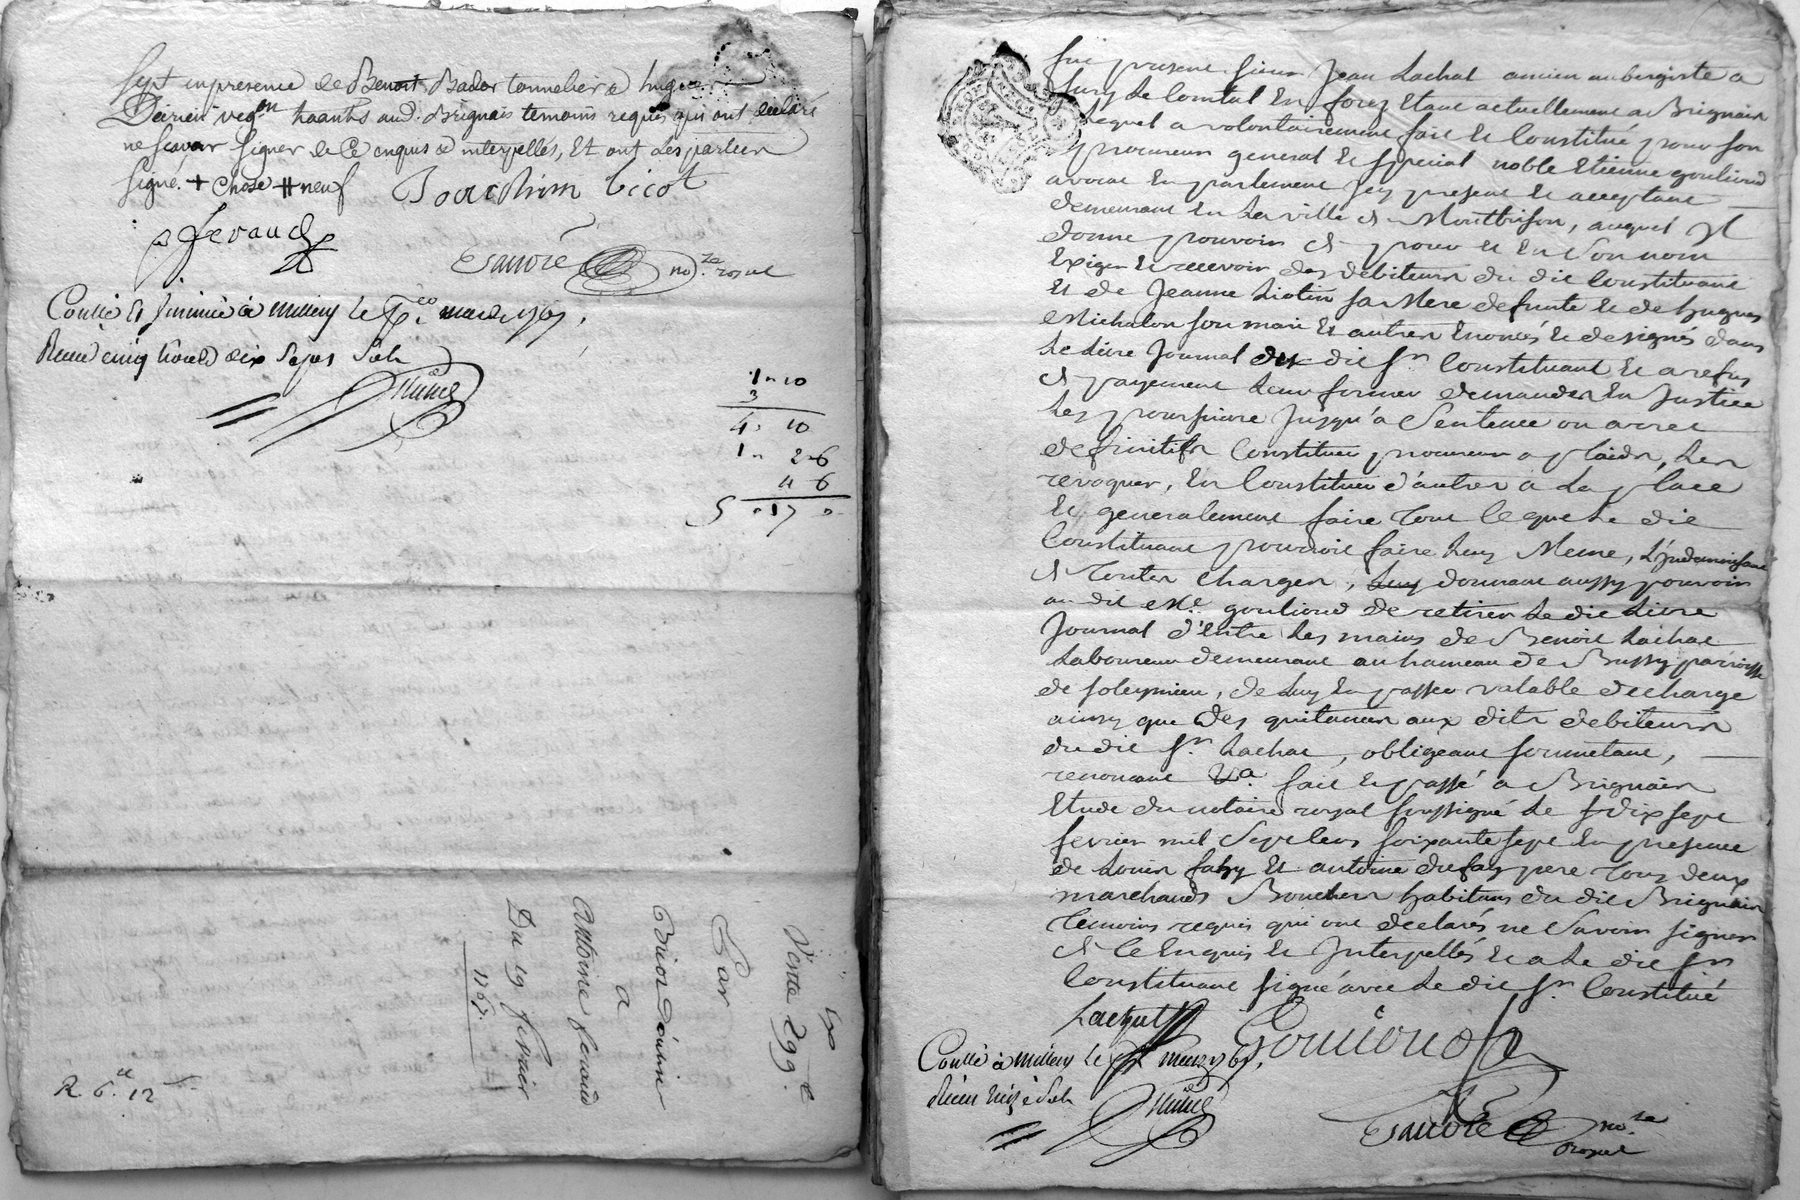 sept en presence de Benoit Bador tonnelier & hugues
Deirieu vegon. haants aud. Brignais temoins requis qui ont declaré
ne scavoir signer de ce enquis & interpellés, Et ont les parties
signé. + chose # neuf Joachim bicot
fferaud
no.re royal
Conllé Et à millery le mars 1767,
Receu cinq livres dix sept sols
1 " 10
3
4. 10
1 " 2 " 6
4 6
5 " 17 0
Vente 299.#
Par
a
Antoine feraud
Du 19 fevrier
1767.
R. 6.# 12 s.
fut present sieur Jean Lachat ancien aubergiste a
Sury Le Comtal En forez Etant actuellement a Brignais
Lequel a volontairement fait Et Constitué pour son
procureur general Et special noble Etienne gouliond
avocat En parlement icy present Et acceptant
demeurant En La ville de Montbrison, auquel Il
donne pouvoir de pour Et En Son nom
Exiger Et recevoir des debiteurs du dit Constituant
Et de Jeanne Liotin sa Mere defunte Et de hugues
Michalon son mari Et autres Enoncés Et designés dans
Le Livre Journal du dit Sr. Constituant Et a refus
de payement Leur former demandes En Justice
Les poursuivre Jusqu'à Sentence ou arret
definitifs Constituer procureur a plaids, Les
revoquer, En Constituer d'autres a La place
Et generalement faire tout Ce que Le dit
Constituant pourroit faire Luy Meme, L'Indemnisant
de toutes charges, Luy donnant aussy pouvoir
au dit Me. gouliond de retirer Le dit Livre
Journal d'Entre Les mains de Benoit Lachat
Laboureur demeurant au hameau de Bussy parroisse
de soleymieu, de Luy En passer valable decharge
ainsy que des quitances aux dits debiteurs
du dit Sr. Lachat, obligeant soumetant,
renoncant &a. fait Et passé a Brignais
Etude du notaire royal soussigné Le dix sept
fevrier mil Sept Cens soixante sept En presence
de Louis fahy Et antoine dufay pere tous deux
marchands Bouchers habitans du dit Brignais
temoins requis qui ont declarés ne Savoir signer
de Ce Enquis Et Interpellés Et a Le dit Sr
Constituant signé avec Le dit Sr. Constitué
Lachat
Conllé à millery le mars 1767.
Receu treize Sols
no.re
royal